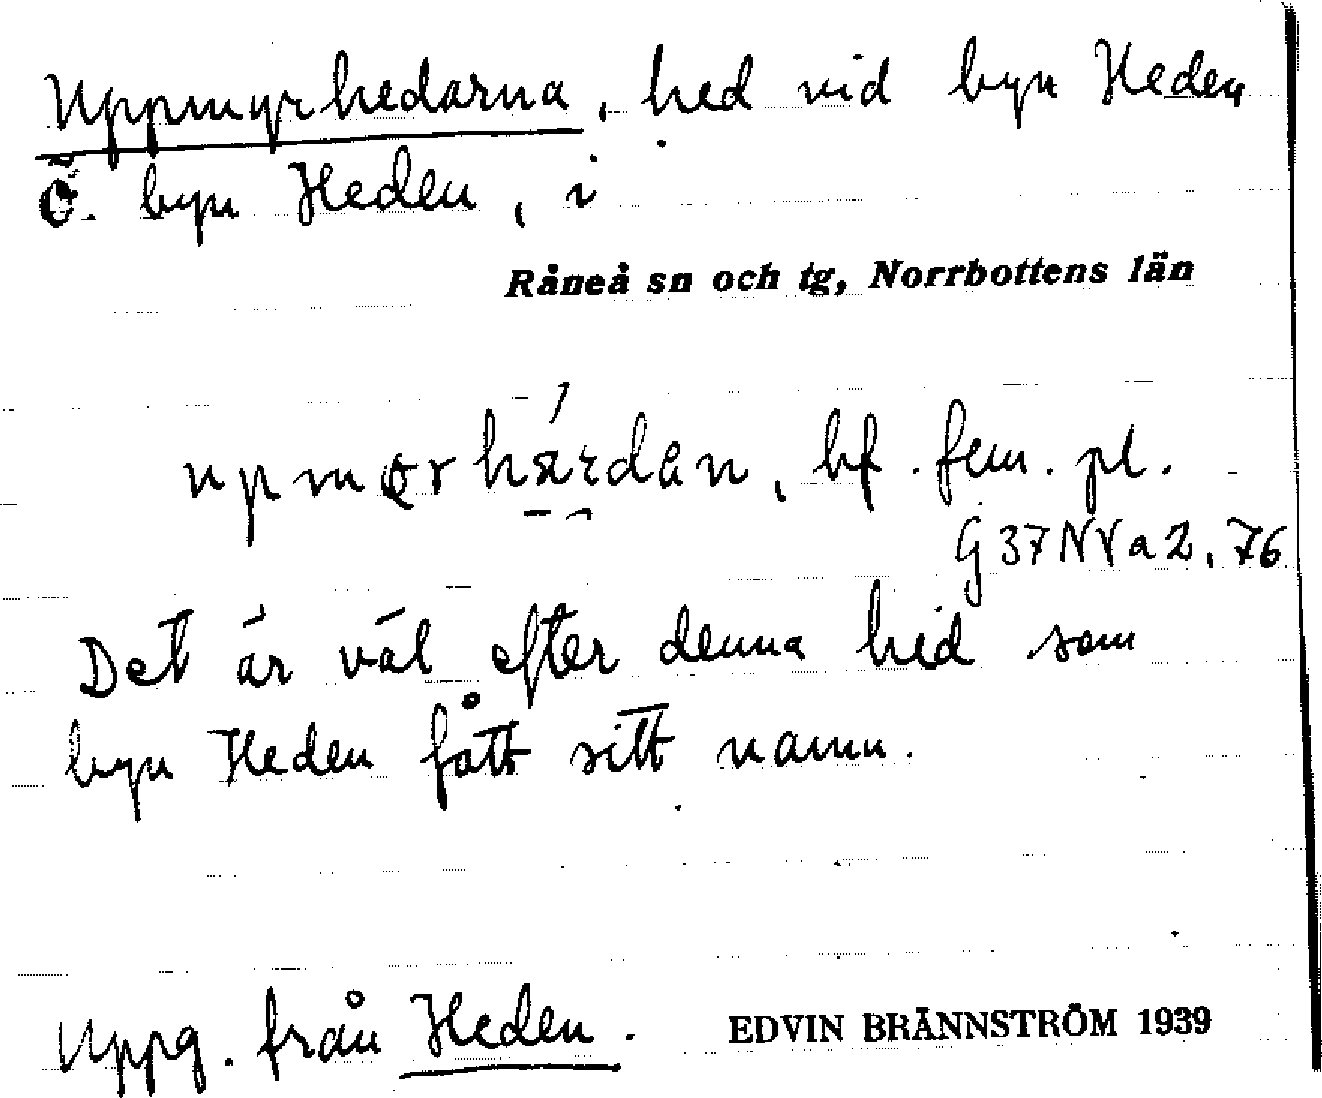 Uppmyrhedarna, hed vid byn Heden
Ö. byn Heden, i
Råneå sn och tg, Norrbottens län
bf. fem. pl.
G 37 NV a 2, 76
Det är väl efter denna hed som
byn Heden fått sitt namn.
Uppg. från Heden. EDVIN BRÄNNSTRÖM 1939